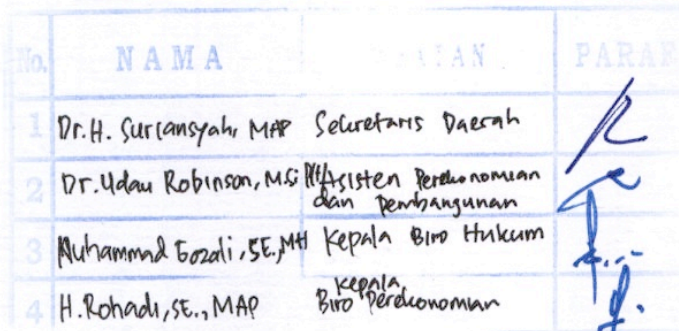 No. NAMA JABATAN PARAF
1 Dr. H. Suriansyah, MAP Sekretaris Daerah
2 Dr. Udau Robinson, M.Si Plt Asisten Perekonomian
dan Pembangunan
3 Muhammad Gozali, SE., MH Kepala Biro Hukum
4 H. Rohadi, SE., MAP Kepala
Biro Perekonomian